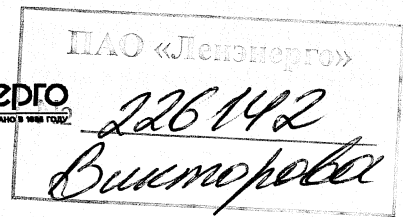 ПАО «Ленэнерго»
ерго
АНО В 1886 ГОДУ
№ 226142
Викторова